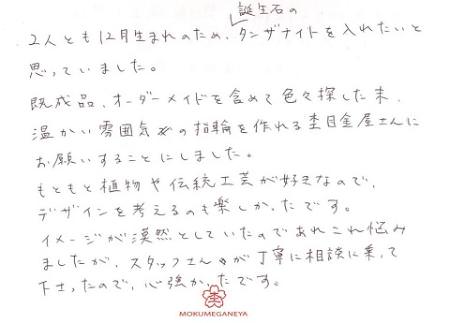 誕生石の
2人とも12月生まれのため、タンザナイトを入れたいと
思っていました。
既成品、オーダーメイドを含めて色々探した末、
温かい雰囲気の指輪を作れる杢目金屋さんに
お願いすることにしました。
もともと植物や伝統工芸が好きなので、
デザインを考えるのも楽しかったです。
イメージが漠然としていたのであれこれ悩み
ましたが、スタッフさんが丁寧に相談に乗って
下さったので、心強かったです。
MOKUMEGANEYA